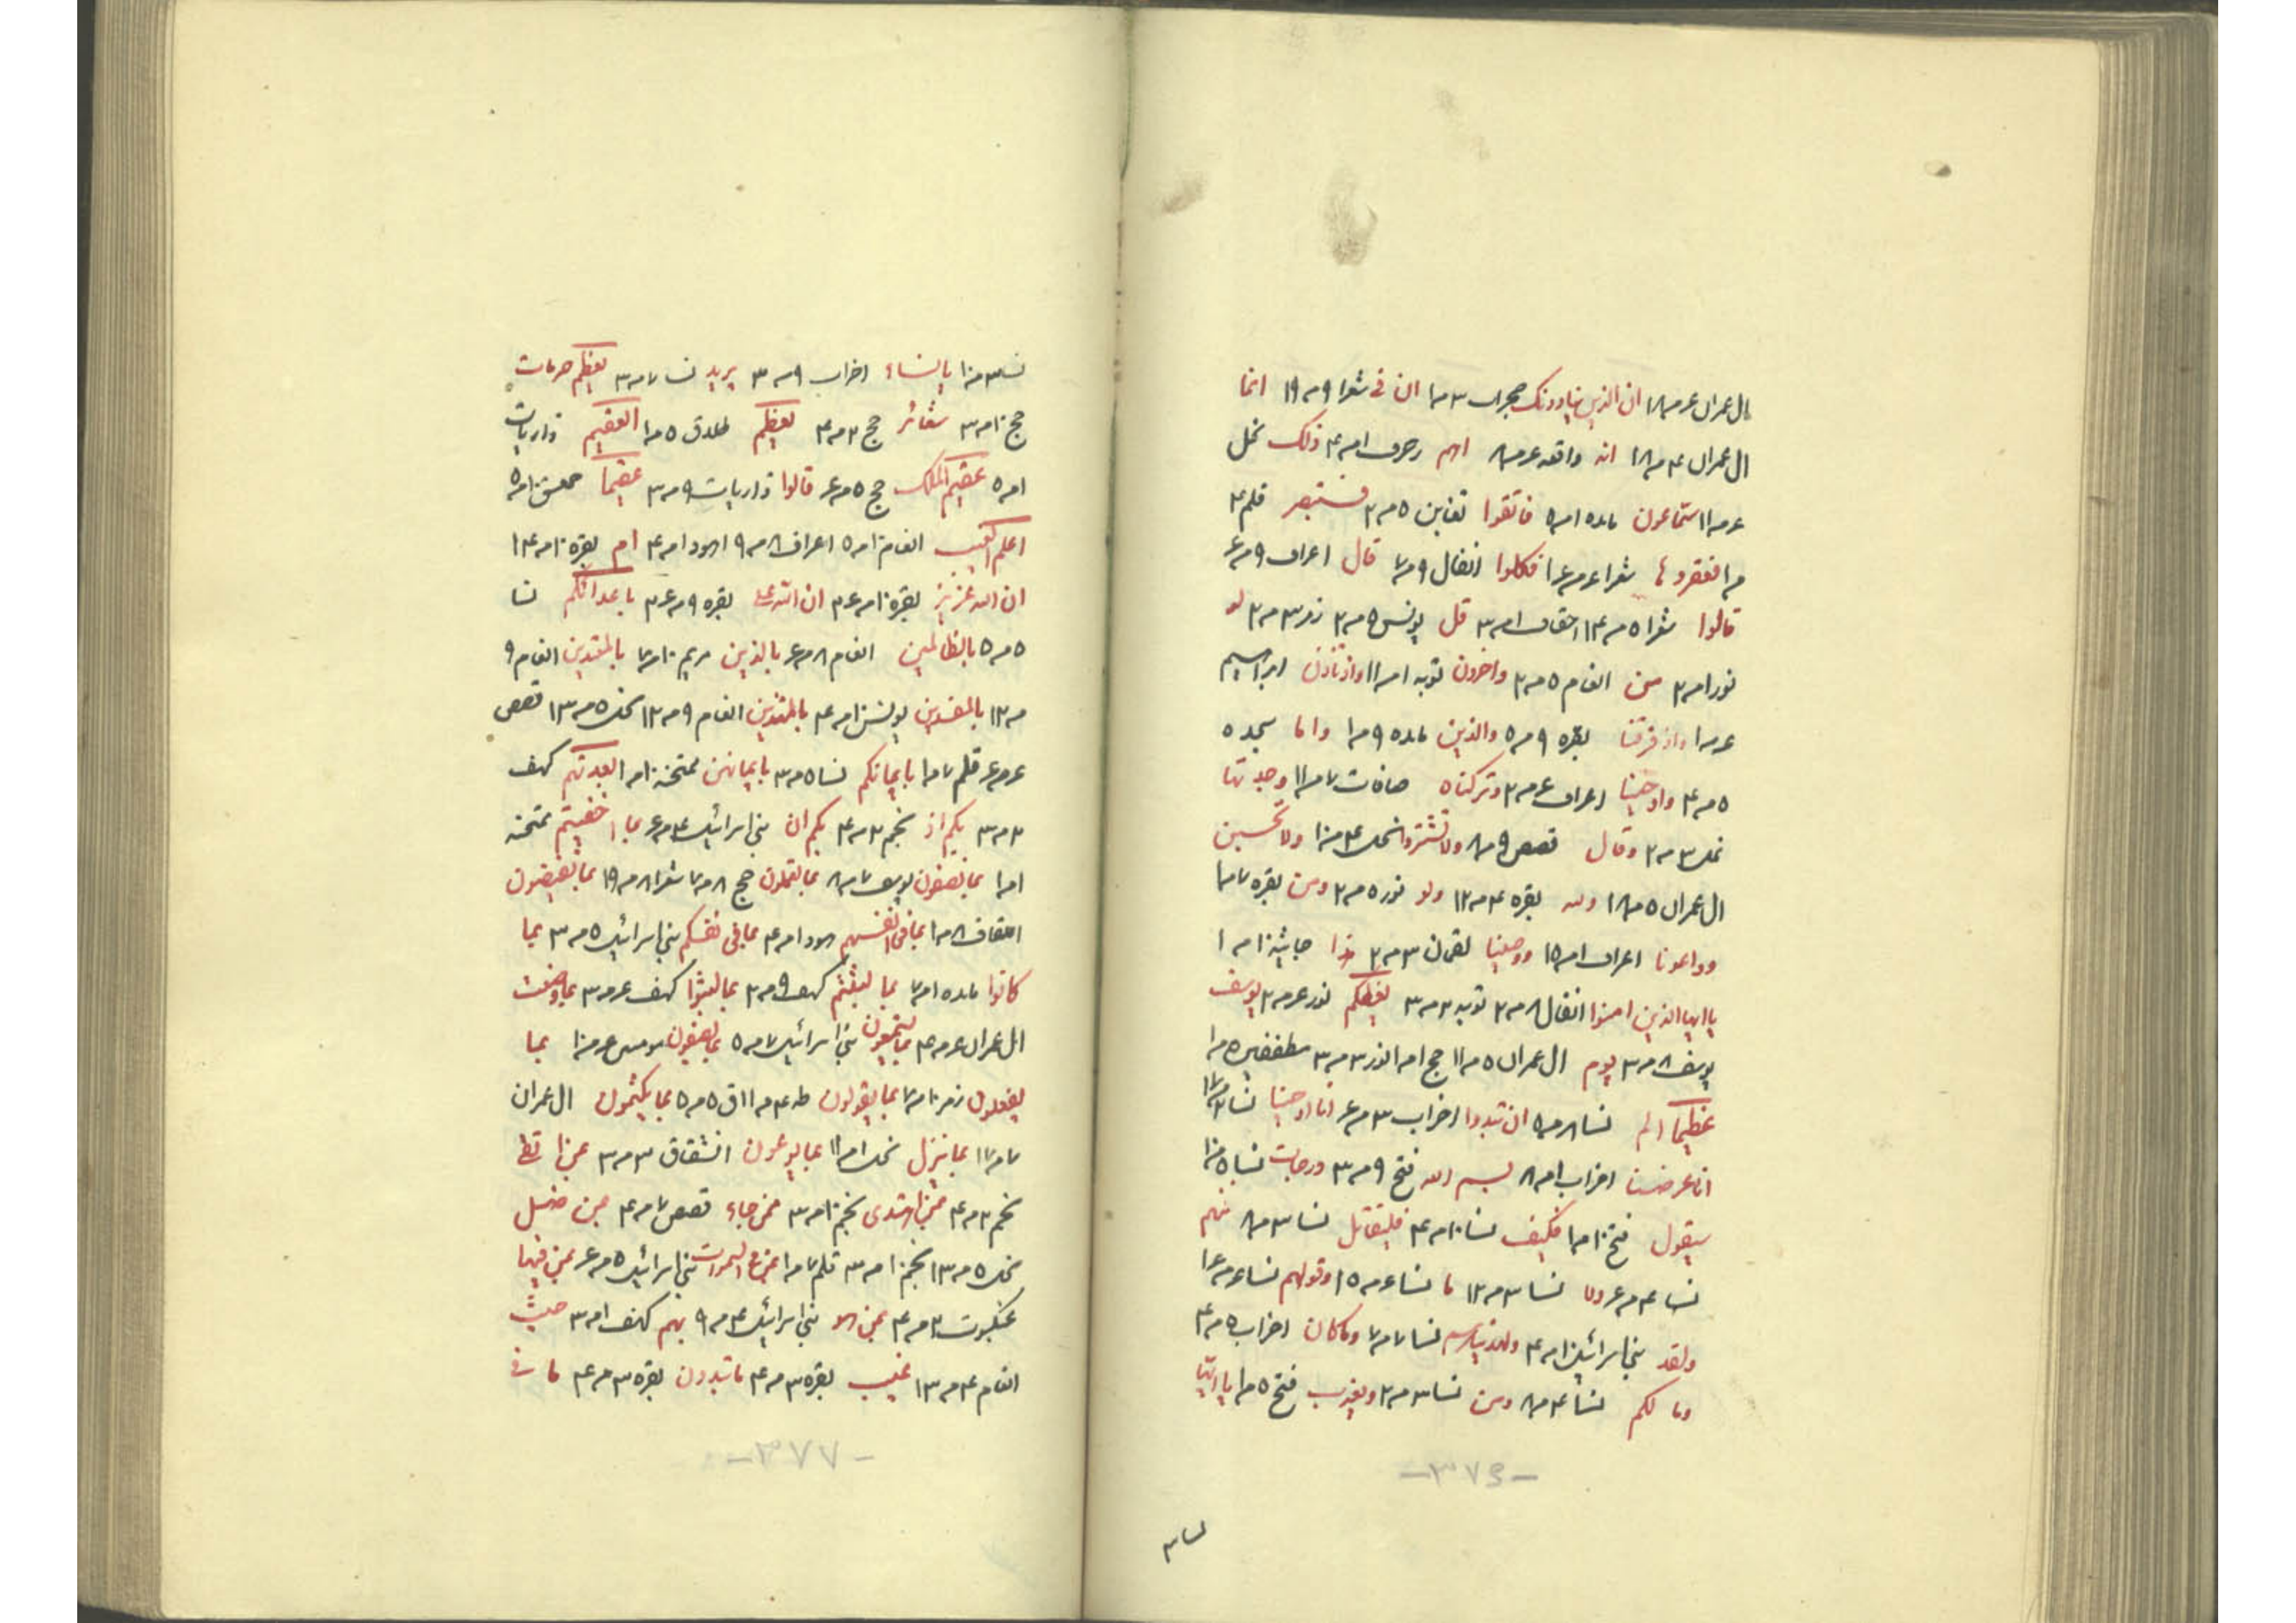 ال عمران ۴ م ۱۸ ان الذین ینادونک حجرات ۳ م ۱ ان فی شعرا ۹ م ۱۹ انما
ال عمران ۴ م ۱۸ انه واقعه ۴ م ۸ اهم زخرف ۱ م ۴ ذلک نحل
۴ م ۱۱ سماعون مائده ۱ م ۵ فاتقوا تغابن ۵ م ۲ فستبصر قلم ۴
م ۱ فعقروها شعرا ۴ م ۱۴ فکلوا انفال ۹ م ۷ قال اعراف ۹ م ۴
قالوا شعرا ۵ م ۱۴ احقاف ۱ م ۳ قل یونس ۵ م ۲ زمر ۳ م ۲ لو
نور ۱ م ۲ من انعام ۵ م ۲ واخرون توبه ۱ م ۱۱ واذ تاذن ابراهیم
۴ م ۱ واذ فرقنا بقره ۹ م ۵ والذین مائده ۹ م ۱ واما سجده
۵ م ۴ واوحینا اعراف ۴ م ۲ وترکناه صافات ۷ م ۱۱ وجدتها
نمل ۳ م ۲ وقال قصص ۹ م ۸ ولا تشتروا نحل ۴ م ۱۰ ولا تحسبن
ال عمران ۵ م ۱۸ ولله بقره ۴ م ۱۲ ولو نور ۵ م ۲ ومن بقره ۷ م ۱
وواعدنا اعراف ۱ م ۱۵ ووصینا لقمان ۳ م ۲ هذا جاثیه ۱۰ م ۱
یا ایها الذین امنوا انفال ۸ م ۲ توبه ۲ م ۳ یعظکم نور ۴ م ۲ یوسف
یوسف ۸ م ۳ یوم ال عمران ۵ م ۱۱ حج ۱ م ۱ نور ۳ م ۳ مطففین ۵ م ۱
عظیما الم نسا ۸ م ۵ ان تبدوا احزاب ۳ م ۴ انا اوحینا نسا ۲ م ۱۷
انا عرضنا احزاب ۱ م ۸ لیس الله فتح ۹ م ۳ درجات نسا ۵ م ۱۰
سیقول فتح ۱۰ م ۱ فکیف نسا ۱۰ م ۴ فلیقاتل نسا ۳ م ۸ منهم
نسا ۴ م ۴ ولا نسا ۳ م ۱۲ ما نسا ۴ م ۱۵ وقولهم نسا ۴ م ۱۴
ولقد بنی اسرائیل ۱۰ م ۴ نسا ۷ م ۷ وما کان احزاب ۵ م ۴
وما لکم نسا ۴ م ۸ ومن نسا ۳ م ۲ ویعذب فتح ۵ م ۱ یا ایها
-۳۷۶-
نسا ۳
نسا ۳ م ۱۰ یا نساء احزاب ۹ م ۳ یرید نسا ۷ م ۳ یعظم حرمات
حج ۱۰ م ۳ شعائر حج ۲ م ۴ یعظم طلاق ۵ م ۱ العقیم ذاریات
۱ م ۵ عقیم الملک حج ۵ م ۴ قالوا ذاریات ۹ م ۳ عقیما حمعسق ۱۰ م ۵
اعلم الغیب انعام ۱۰ م ۵ اعراف ۸ م ۹ هود ۱ م ۴ ام بقره ۱۰ م ۱۴
ان الله عزیز بقره ۱۰ م ۲۴ ان الله علی بقره ۹ م ۲۴ باعدائکم نسا
۵ م ۵ بالظالمین انعام ۸ م ۴ بالذین مریم ۱۰ م ۷ بالمعتدین انعام ۹
م ۱۲ بالمفسدین یونس ۱۰ م ۴ بالمهتدین انعام ۹ م ۱۲ نحل ۵ م ۱۳ قصص
۴ م ۴ قلم ۷ م ۱ بایمانکم نسا ۵ م ۳ بایمانهن ممتحنه ۱۰ م ۱ بعدتهم کهف
۲ م ۳ بکم اذ نجم ۲ م ۴ بکم ان بنی اسرائیل ۴ م ۴ بما اخفیتم ممتحنه
۱ م ۱ بما تصفون یوسف ۷ م ۸ بما تعملون حج ۸ م ۷ شعرا ۸ م ۱۹ بما تفیضون
احقاف ۸ م ۱ بما فی انفسهم هود ۱ م ۴ بما فی نفوسکم بنی اسرائیل ۵ م ۳ بما
کانوا مائده ۱ م ۷ بما لبثتم کهف ۹ م ۲ بما لبثوا کهف ۴ م ۳ بما وضعت
ال عمران ۴ م ۴ بما یستمعون بنی اسرائیل ۷ م ۵ بما یصفون مومنین ۴ م ۱۰ بما
یفعلون زمر ۱۰ م ۷ بما یقولون طه ۴ م ۱۱ ق ۵ م ۵ بما یکتمون ال عمران
۷ م ۱۷ بما ینزل نحل ۱ م ۱۱ بما یوعون انشقاق ۳ م ۳ بمن اتقی
نجم ۲ م ۴ بمن اهتدی نجم ۱۰ م ۳ بمن جاء قصص ۷ م ۴ بمن ضل
نحل ۵ م ۱۳ نجم ۱۰ م ۳ قلم ۷ م ۱ بمن فی السموات بنی اسرائیل ۵ م ۴ بمن فیها
عنکبوت ۲ م ۴ بمن هو بنی اسرائیل ۴ م ۹ بهم کهف ۱ م ۳ حیث
انعام ۴ م ۱۳ غیب بقره ۳ م ۴ ما تبدون بقره ۳ م ۴ ما فی
-۳۷۷-